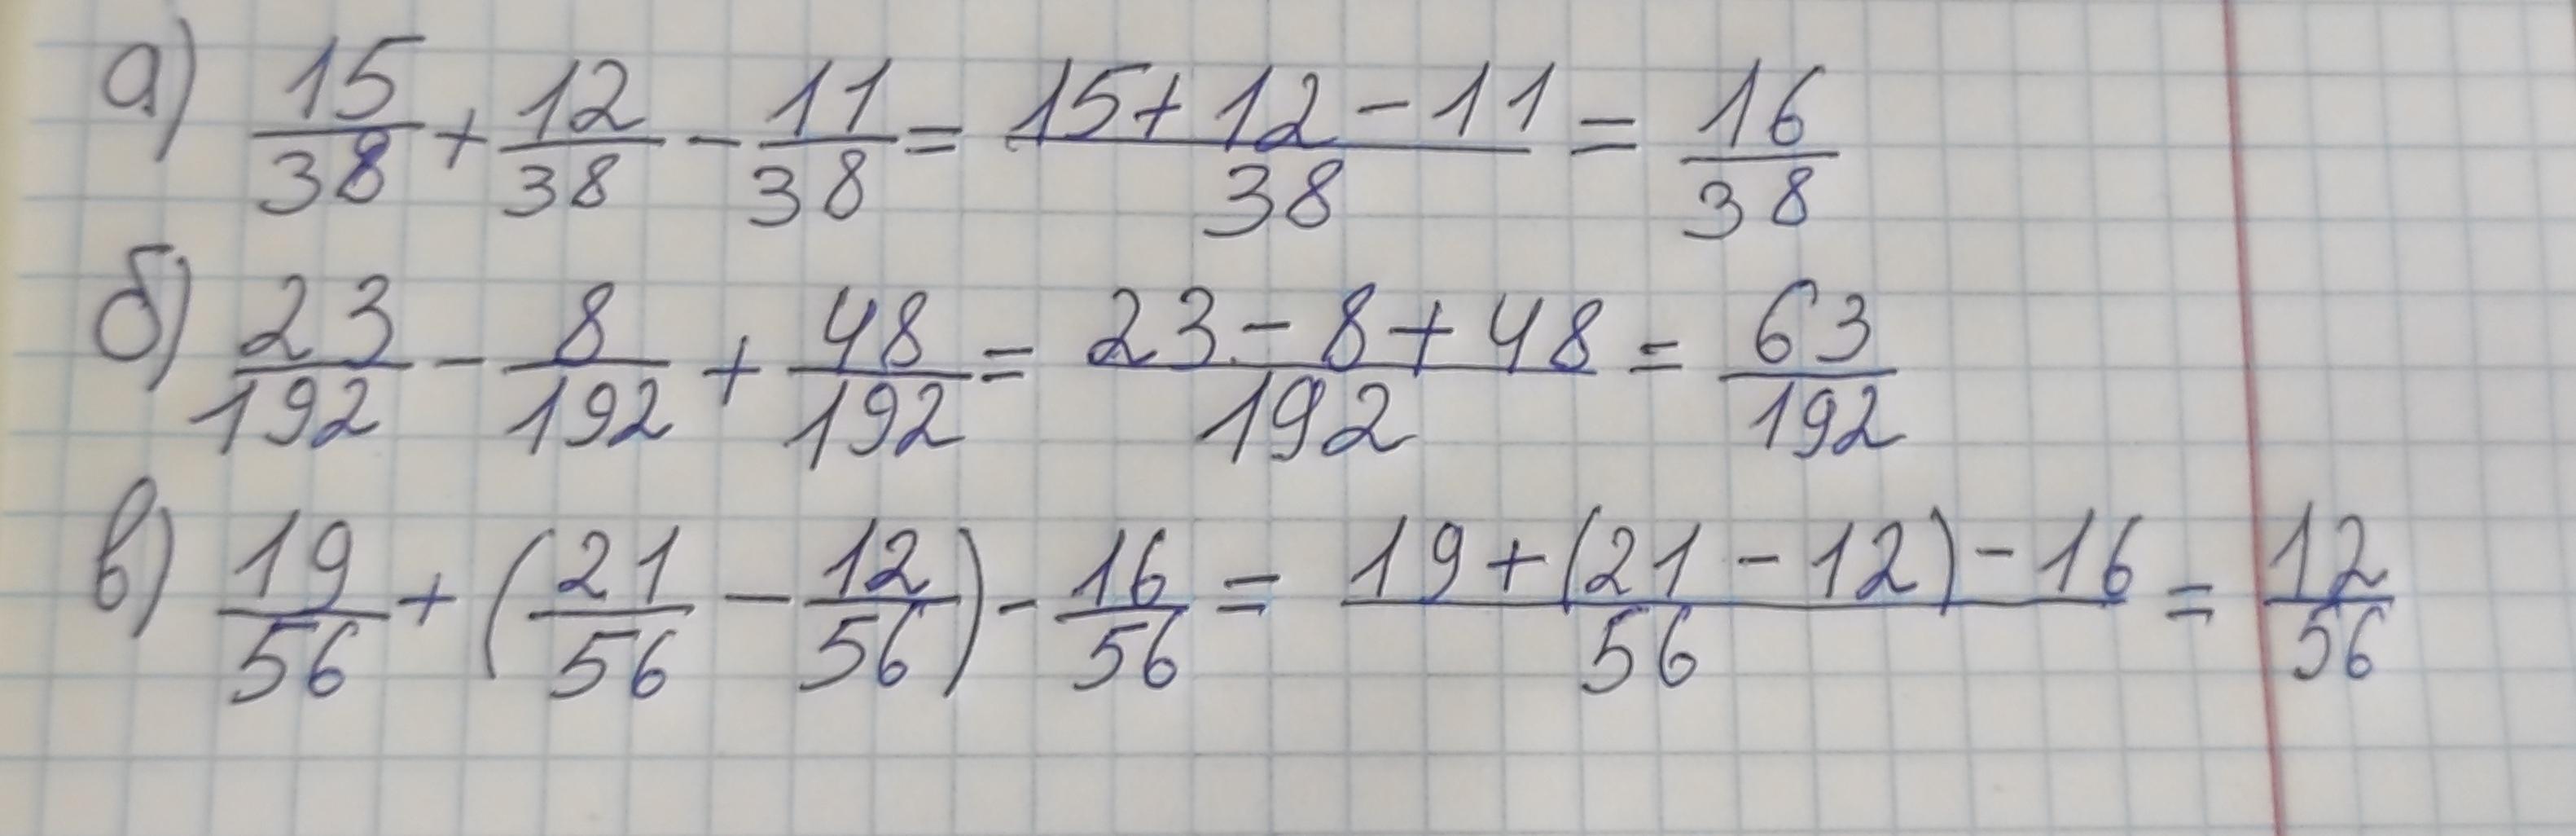 а) 15/38 + 12/38 - 11/38 = (15 + 12 - 11)/38 = 16/38
б) 23/192 - 8/192 + 48/192 = (23 - 8 + 48)/192 = 63/192
в) 19/56 + (21/56 - 12/56) - 16/56 = (19 + (21 - 12) - 16)/56 = 12/56